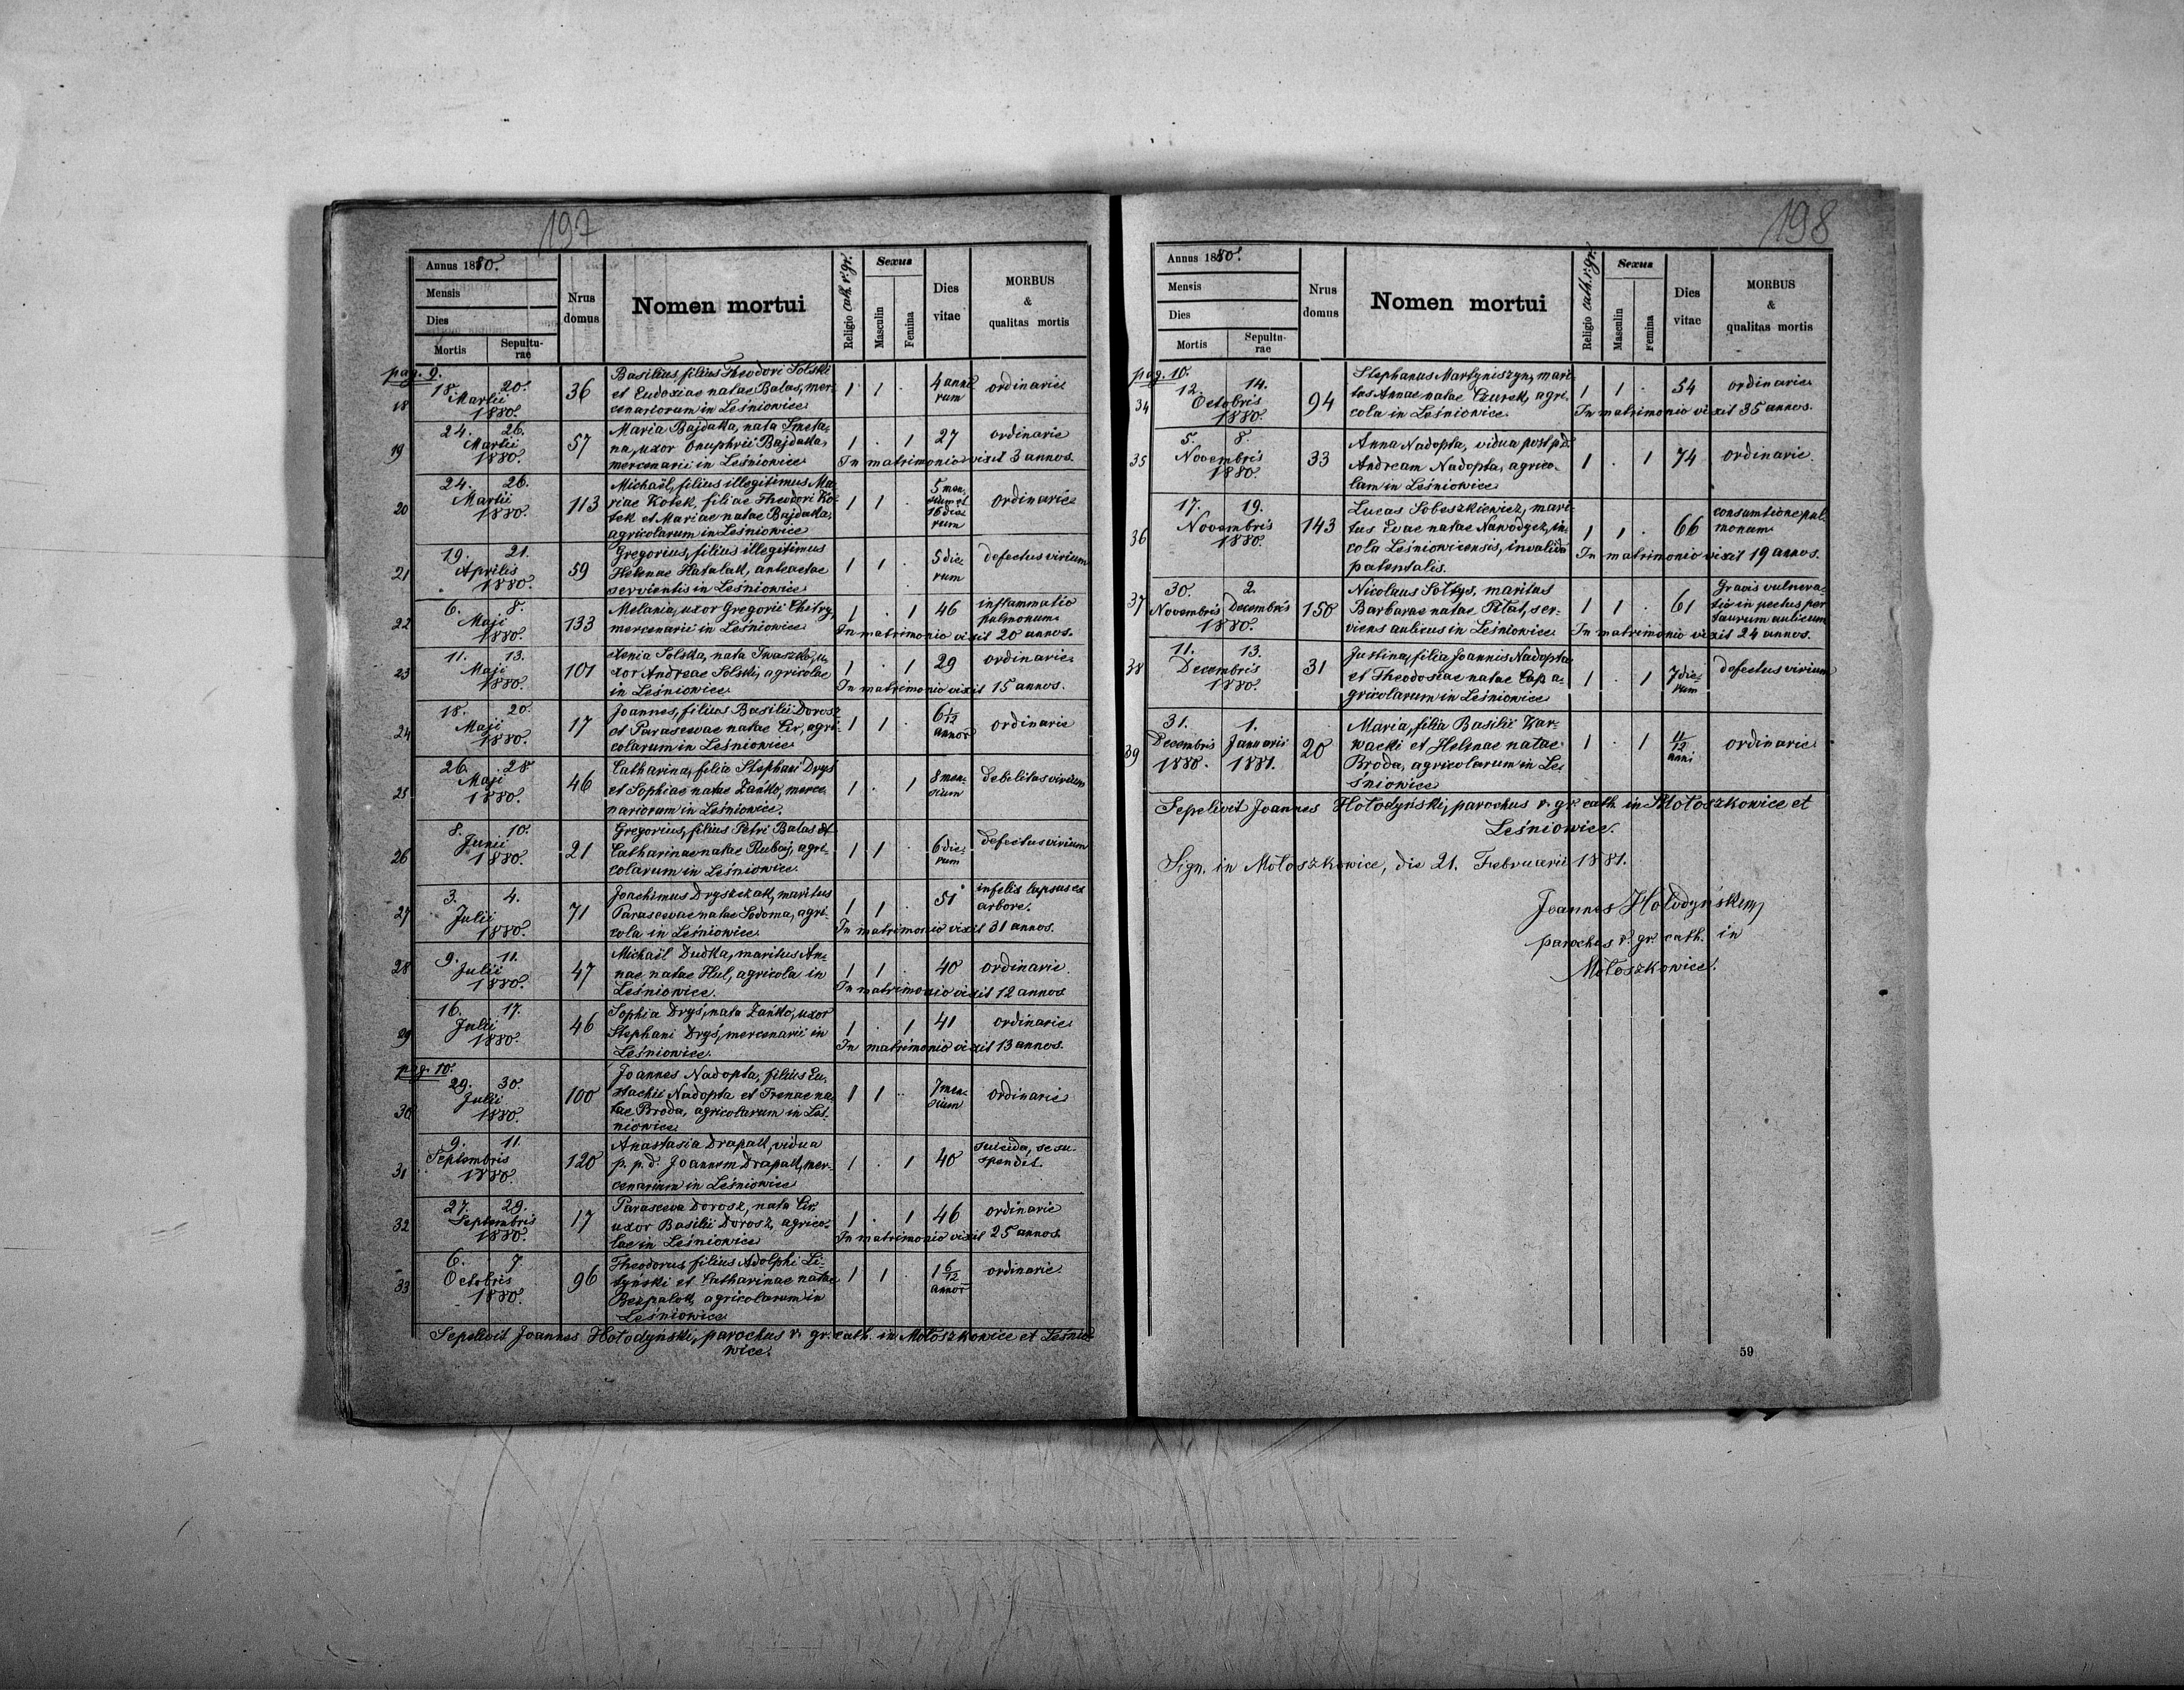 197
Annus 1880.
Mensis
Dies
Mortis
Sepultu-
rae
Nrus
domus
Nomen mortui
Religio cath. r. gr.
Sexus
Masculin
Femina
Dies
vitae
MORBUS
&
qualitas mortis
pag. 9.
18 18. 20. Martii 1880. 36
Basilius, filius Theodori Solski
et Eudoxiae natae Balas, mer-
cenariorum in Leśniowice
1 1 . 4 anno
rum
ordinarie
19 24. 26. Martii 1880. 57
Maria Bajdała, nata Smeta-
na, uxor Onuphrii Bajdała,
mercenarii in Leśniowice
1 . 1 27 ordinarie
In matrimonio vixit 3 annos.
20 24. 26. Martii 1880. 113
Michaël, filius illegitimus Ma-
riae Kotek, filiae Theodori Ko-
tek et Mariae natae Bajdała,
agricolarum in Leśniowice
1 1 . 5 men-
sium et
16 die-
rum
ordinarie
21 19. 21. Aprilis 1880. 59
Gregorius, filius illegitimus
Helenae Hatalak, anteactae
servientis in Leśniowice
1 1 . 5 die-
rum
defectus virium
22 6. 8. Maji 1880. 133
Melania, uxor Gregorii Chitry,
mercenarii in Leśniowice
1 . 1 46 inflammatio
pulmonum
In matrimonio vixit 20 annos.
23 11. 13. Maji 1880. 101
Xenia Solska, nata Iwaszko, u-
xor Andreae Solski, agricolae
in Leśniowice
1 . 1 29 ordinarie
In matrimonio vixit 15 annos.
24 18. 20. Maji 1880. 17
Joannes, filius Basilii Dorosz
et Parascevae natae Cir, agri-
colarum in Leśniowice
1 1 . 6 1/12
annor
ordinarie
25 26. 28. Maji 1880. 46
Catharina, filia Stephani Dryś
et Sophiae natae Zańko, merce-
nariorum in Leśniowice.
1 . 1 8 men-
sium
debilitas virium
26 8. 10. Junii 1880. 21
Gregorius, filius Petri Balas et
Catharinae natae Rubaj, agri-
colarum in Leśniowice.
1 1 . 6 die-
rum
defectus virium
27 3. 4. Julii 1880. 71
Joachimus Dryszczak, maritus
Parascevae natae Sodoma, agri-
cola in Leśniowice
1 1 . 51 infelix lapsus ex
arbore.
In matrimonio vixit 31 annos.
28 9. 11. Julii 1880. 47
Michaël Dudka, maritus An-
nae natae Hul, agricola in
Leśniowice.
1 1 . 40 ordinarie.
In matrimonio vixit 12 annos
29 16. 17. Julii 1880. 46
Sophia Dryś, nata Zańko, uxor
Stephani Dryś, mercenarii in
Leśniowice.
1 . 1 41 ordinarie
In matrimonio vixit 13 annos.
pag. 10.
30 29. 30. Julii 1880. 100
Joannes Nadopta, filius Eu-
stachii Nadopta et Irenae na-
tae Broda, agricolarum in Leś-
niowice
1 1 . 7 men-
sium
ordinarie
31 9. 11. Septembris 1880. 120
Anastasia Drapak, vidua
p. p. d. Joannem Drapak, mer-
cenarium in Leśniowice
1 . 1 40 suicida, se su-
spendit.
32 27. 29. Septembris 1880. 17
Parasceva Dorosz, nata Cir,
uxor Basilii Dorosz, agrico-
lae in Leśniowice
1 . 1 46 ordinarie
In matrimonio vixit 25 annos
33 6. 7. Octobris 1880. 96
Theodorus filius Adolphi Li-
tyński et Catharinae natae
Bezpalok, agricolarum in
Leśniowice
1 1 . 1 6/12
annor
ordinarie.
Sepelivit Joannes Hołodyński, parochus r. gr. cath. in Mołoszkowice et Leśnio-
wice.
198
Annus 1880.
Mensis
Dies
Mortis
Sepultu-
rae
Nrus
domus
Nomen mortui
Religio cath. r. gr.
Sexus
Masculin
Femina
Dies
vitae
MORBUS
&
qualitas mortis
pag. 10.
34 12. 14. Octobris 1880. 94
Stephanus Martyniszyn, mari-
tus Annae natae Caurek, agri-
cola in Leśniowice
1 1 . 54 ordinarie
In matrimonio vixit 35 annos.
35 5. 8. Novembris 1880. 33
Anna Nadopta, vidua post p. d.
Andream Nadopta, agrico-
lam in Leśniowice
1 . 1 74 ordinarie.
36 17. 19. Novembris 1880. 143
Lucas Sobeszkiewicz, mari-
tus Evae natae Nawodycz, in-
cola Leśniowicensis, invalida
patentalis.
1 1 . 66 consumtione pul-
monum
In matrimonio vixit 19 annos.
37 30. Novembris 2. Decembris 1880. 150
Nicolaus Sołtys, maritus
Barbarae natae Piłat, ser-
viens aulicus in Leśniowice
1 1 . 61 Gravis vulnera-
tio in pectus per
taurum aulicum
In matrimonio vixit 24 annos.
38 11. 13. Decembris 1880. 31
Justina, filia Joannis Nadopta
et Theodosiae natae Cap a-
gricolarum in Leśniowice
1 . 1 7 die-
rum
defectus virium
39 31. Decembris 1880. 1. Januaris 1881. 20
Maria, filia Basilii War-
wacki et Helenae natae
Broda, agricolarum in Le-
śniowice
1 . 1 11/12
anni
ordinarie
Sepelivit Joannes Hołodyński, parochus r. gr. cath. in Mołoszkowice et
Leśniowice.
Sign. in Mołoszkowice, die 21. Februarii 1881.
Joannes Hołodyński mp,
parochus r. gr. cath. in
Mołoszkowice.
59